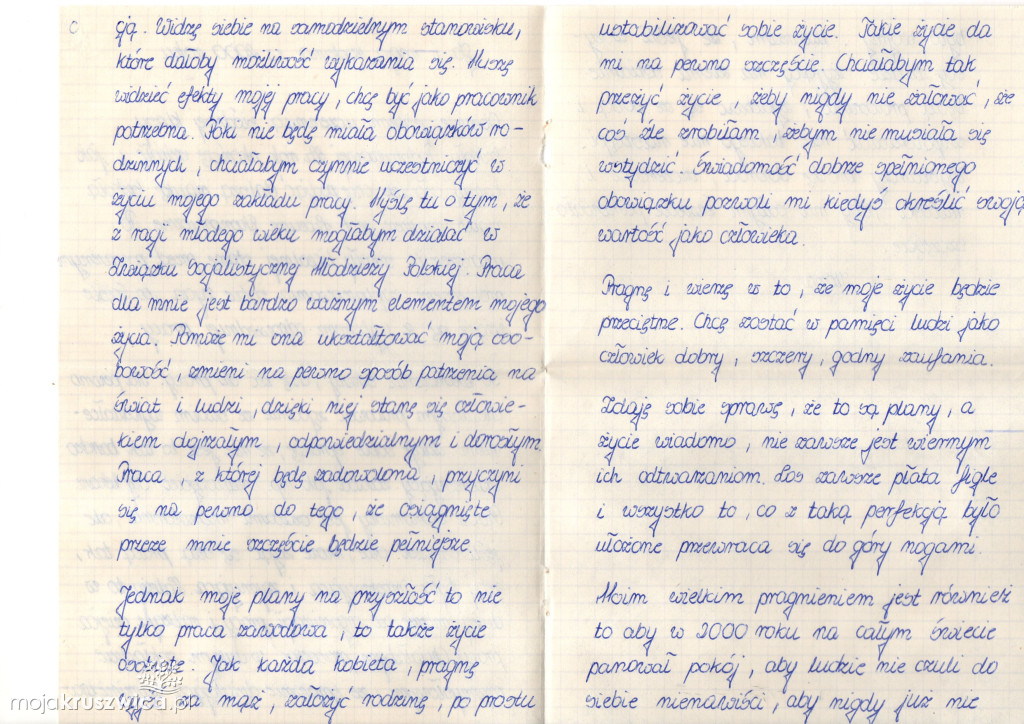 cją. Widzę siebie na samodzielnym stanowisku,
które dałoby możliwość wykazania się. Muszę
widzieć efekty mojej pracy, chcę być jako pracownik
potrzebna. Póki nie będę miała obowiązków ro-
dzinnych, chciałabym czynnie uczestniczyć w
życiu mojego zakładu pracy. Myślę tu o tym, że
z racji młodego wieku mogłabym działać w
Związku Socjalistycznej Młodzieży Polskiej. Praca
dla mnie jest bardzo ważnym elementem mojego
życia. Pomoże mi ona ukształtować moją oso-
bowość, zmieni na pewno sposób patrzenia na
świat i ludzi, dzięki niej stanę się człowie-
kiem dojrzałym, odpowiedzialnym i dorosłym.
Praca, z której będę zadowolona, przyczyni
się na pewno do tego, że osiągnięte
przeze mnie szczęście będzie pełniejsze.
Jednak moje plany na przyszłość to nie
tylko praca zawodowa, to także życie
osobiste. Jak każda kobieta, pragnę
wyjść za mąż, założyć rodzinę, po prostu
ustabilizować sobie życie. Takie życie da
mi na pewno szczęście. Chciałabym tak
przeżyć życie, żeby nigdy nie żałować, że
coś źle zrobiłam, żebym nie musiała się
wstydzić. Świadomość dobrze spełnionego
obowiązku pozwoli mi kiedyś określić swoją
wartość jako człowieka.
Pragnę i wierzę w to, że moje życie będzie
przeciętne. Chcę zostać w pamięci ludzi jako
człowiek dobry, szczery, godny zaufania.
Zdaję sobie sprawę, że to są plany, a
życie wiadomo, nie zawsze jest wiernym
ich odtwarzaniom. Los zawsze płata figle
i wszystko to, co z taką perfekcją było
ułożone przewraca się do góry nogami.
Moim wielkim pragnieniem jest również
to aby w 2000 roku na całym świecie
panował pokój, aby ludzie nie czuli do
siebie nienawiści, aby nigdy już nie
mojakruszwica.pl